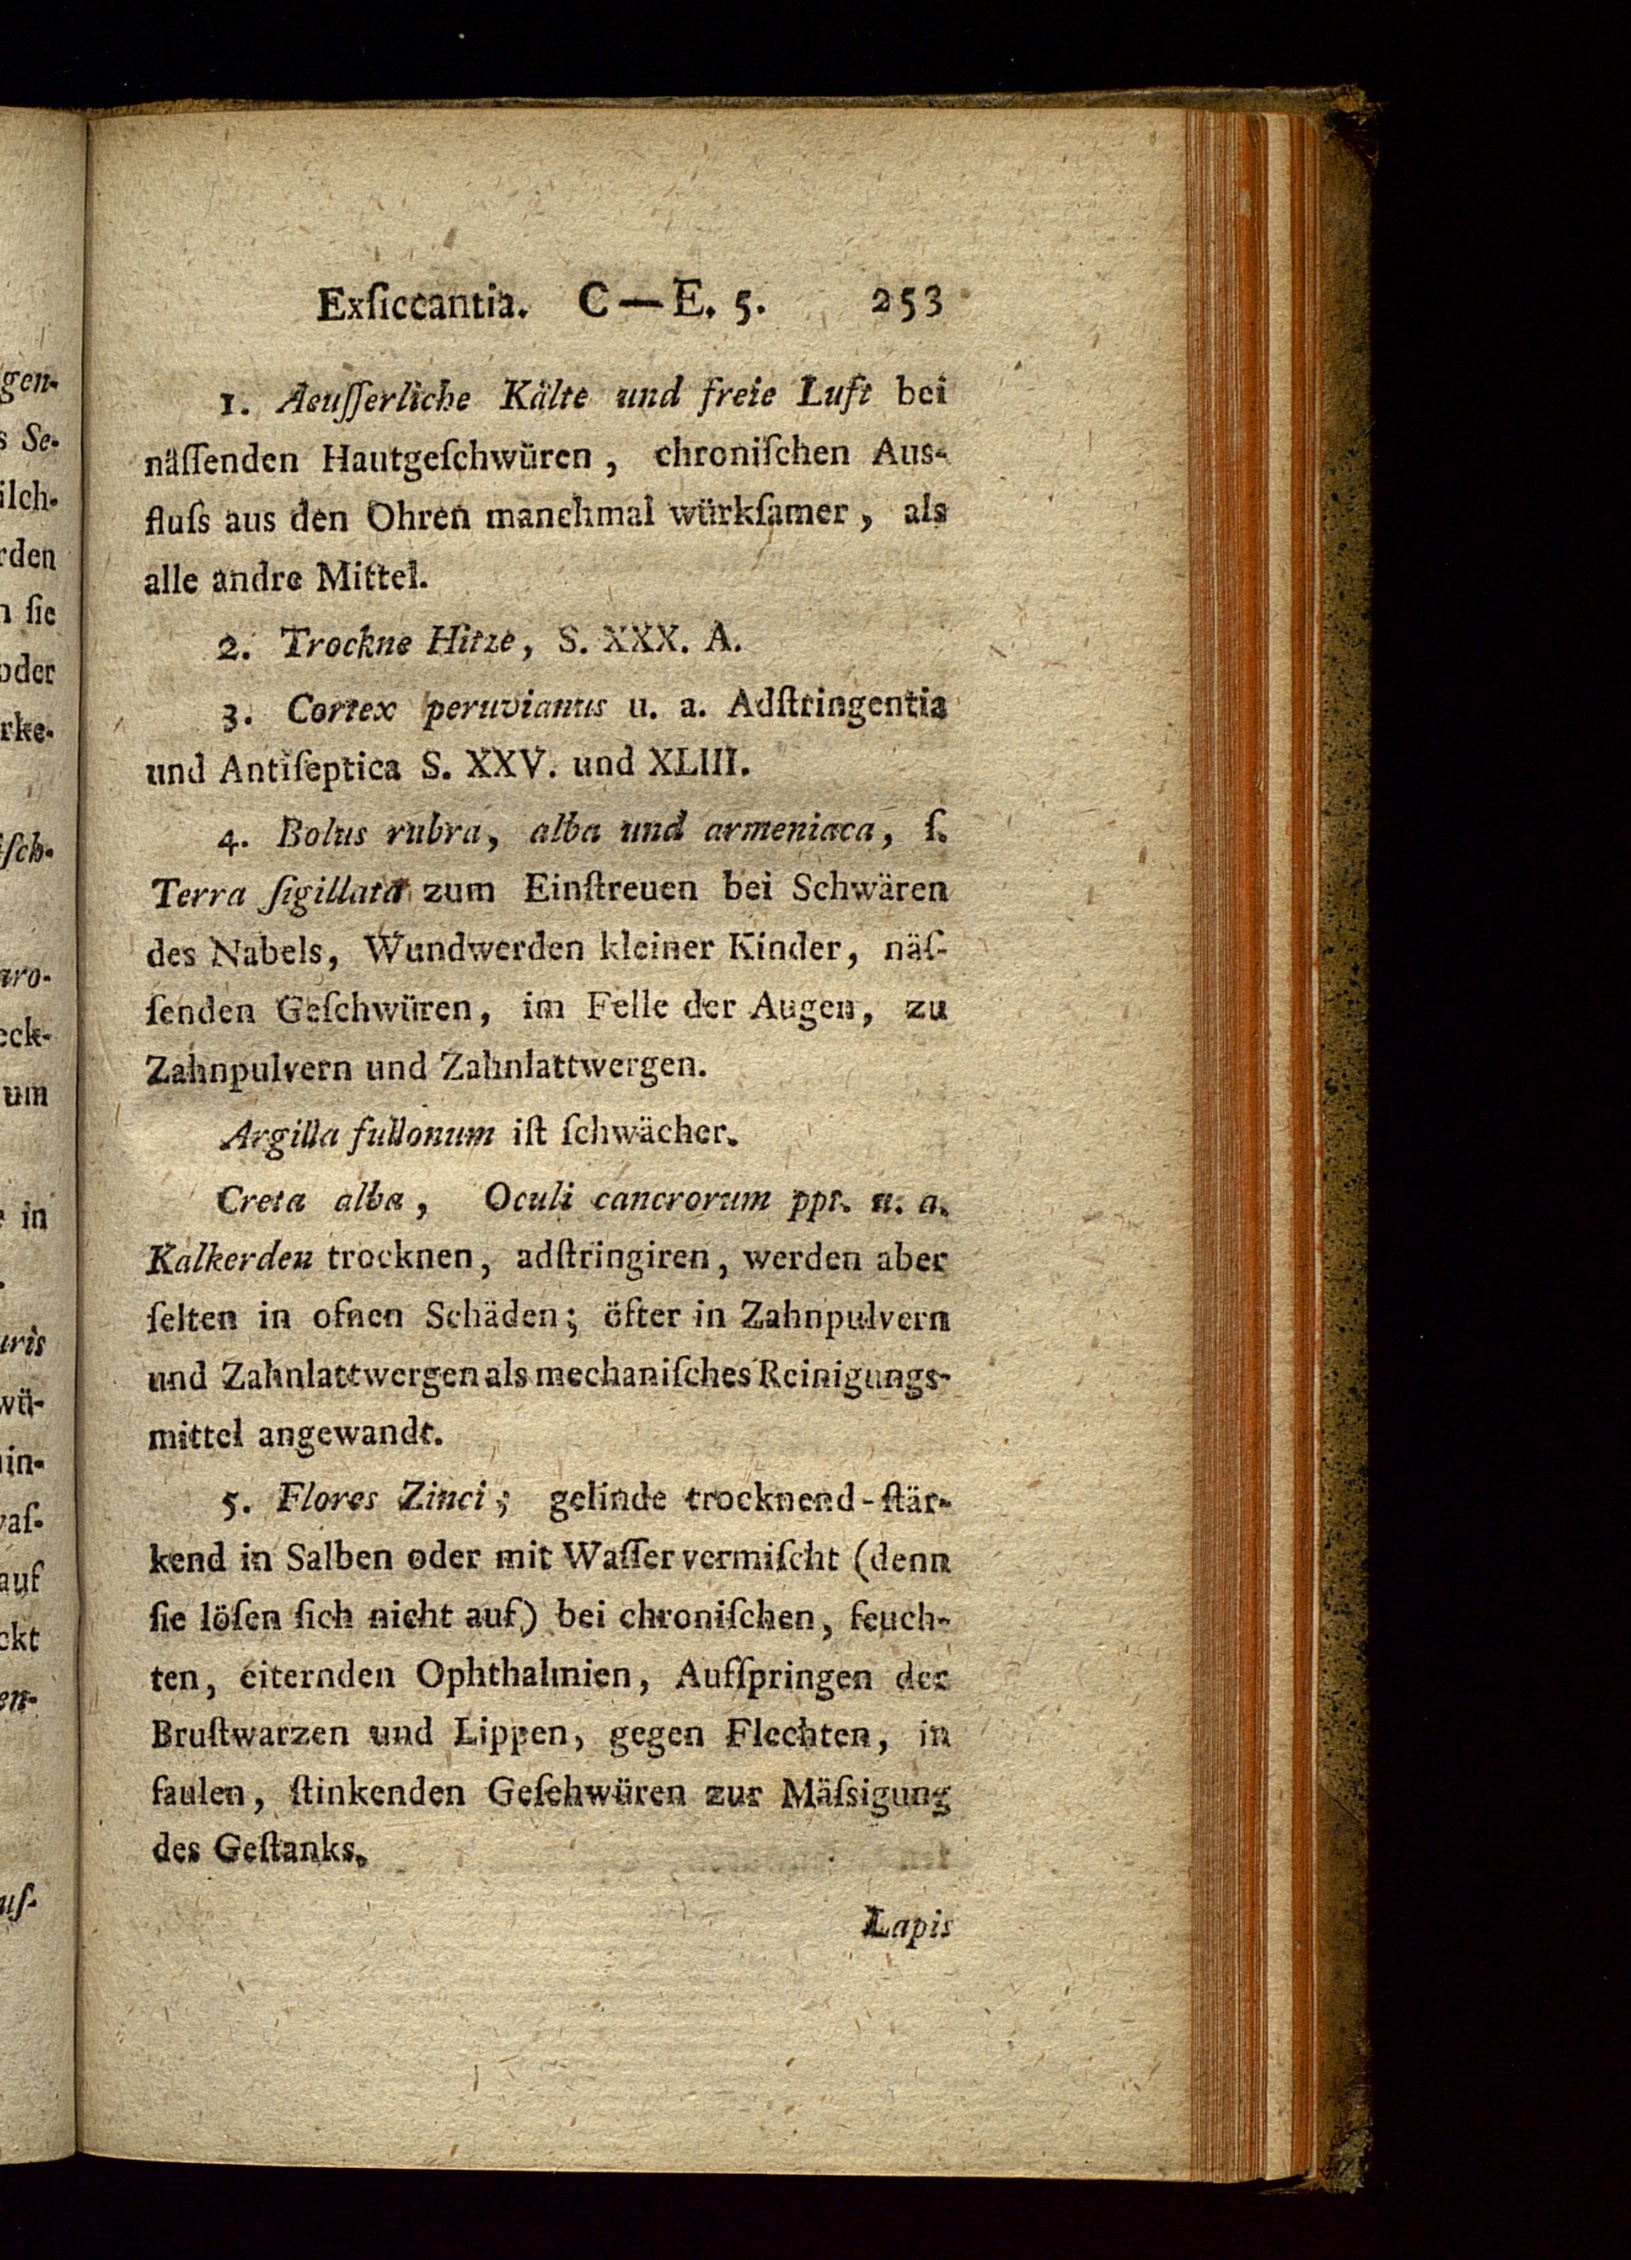 gen-
s Se-
ilch-
rden
n ſie
oder
rke-
iſch-
aro-
eck-
um
e in
uris
wü-
in-
vaſ-
auf
ckt
en-
uſ-
Exſiccantia. C — E. 5. 253
1. Aeuſſerliche Kälte und freie Luft bei
näſſenden Hautgeſchwüren, chroniſchen Aus-
fluſs aus den Ohren manchmal würkſamer, als
alle andre Mittel.
2. Trockne Hitze, S. XXX. A.
3. Cortex peruvianus u. a. Adſtringentia
und Antiſeptica S. XXV. und XLIII.
4. Bolus rubra, alba und armeniaca, ſ.
Terra ſigillata zum Einſtreuen bei Schwären
des Nabels, Wundwerden kleiner Kinder, näſ-
ſenden Geſchwüren, im Felle der Augen, zu
Zahnpulvern und Zahnlattwergen.
Argilla fullonum iſt ſchwächer.
Creta alba, Oculi cancrorum ppt. u. a.
Kalkerden trocknen, adſtringiren, werden aber
ſelten in ofnen Schäden; öfter in Zahnpulvern
und Zahnlattwergen als mechaniſches Reinigungs-
mittel angewandt.
5. Flores Zinci; gelinde trocknend-ſtär-
kend in Salben oder mit Waſſer vermiſcht (denn
ſie löſen ſich nicht auf) bei chroniſchen, feuch-
ten, eiternden Ophthalmien, Aufſpringen der
Bruſtwarzen und Lippen, gegen Flechten, in
faulen, ſtinkenden Geſchwüren zur Mäſsigung
des Geſtanks.
Lapis